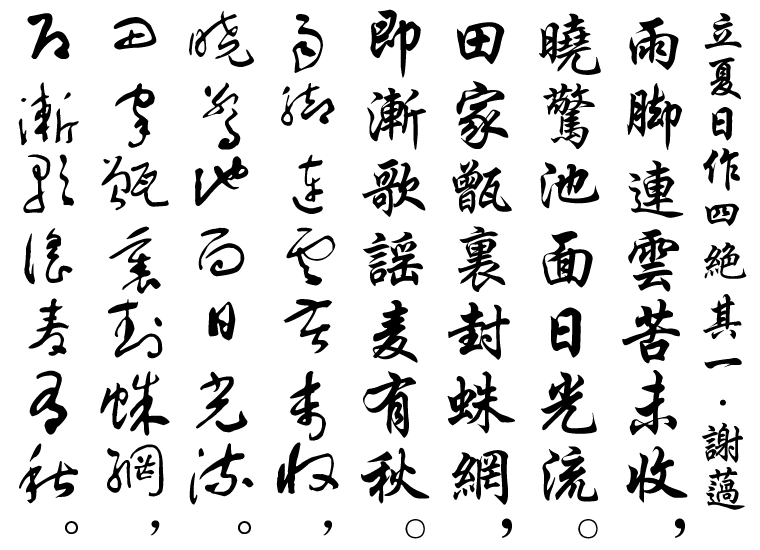 立夏日作四絕其一·謝薖
雨脚連雲苦未收，
曉驚池面日光流。
田家甑裏封蛛網，
即漸歌謡麦有秋。
雨脚連雲苦未收，
曉驚池面日光流。
田家甑裏封蛛網，
即漸歌謡麦有秋。